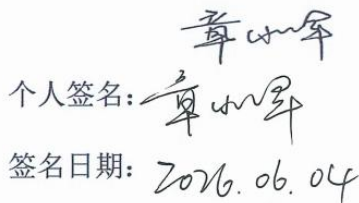 章小军
个人签名：章小军
签名日期：2026.06.04